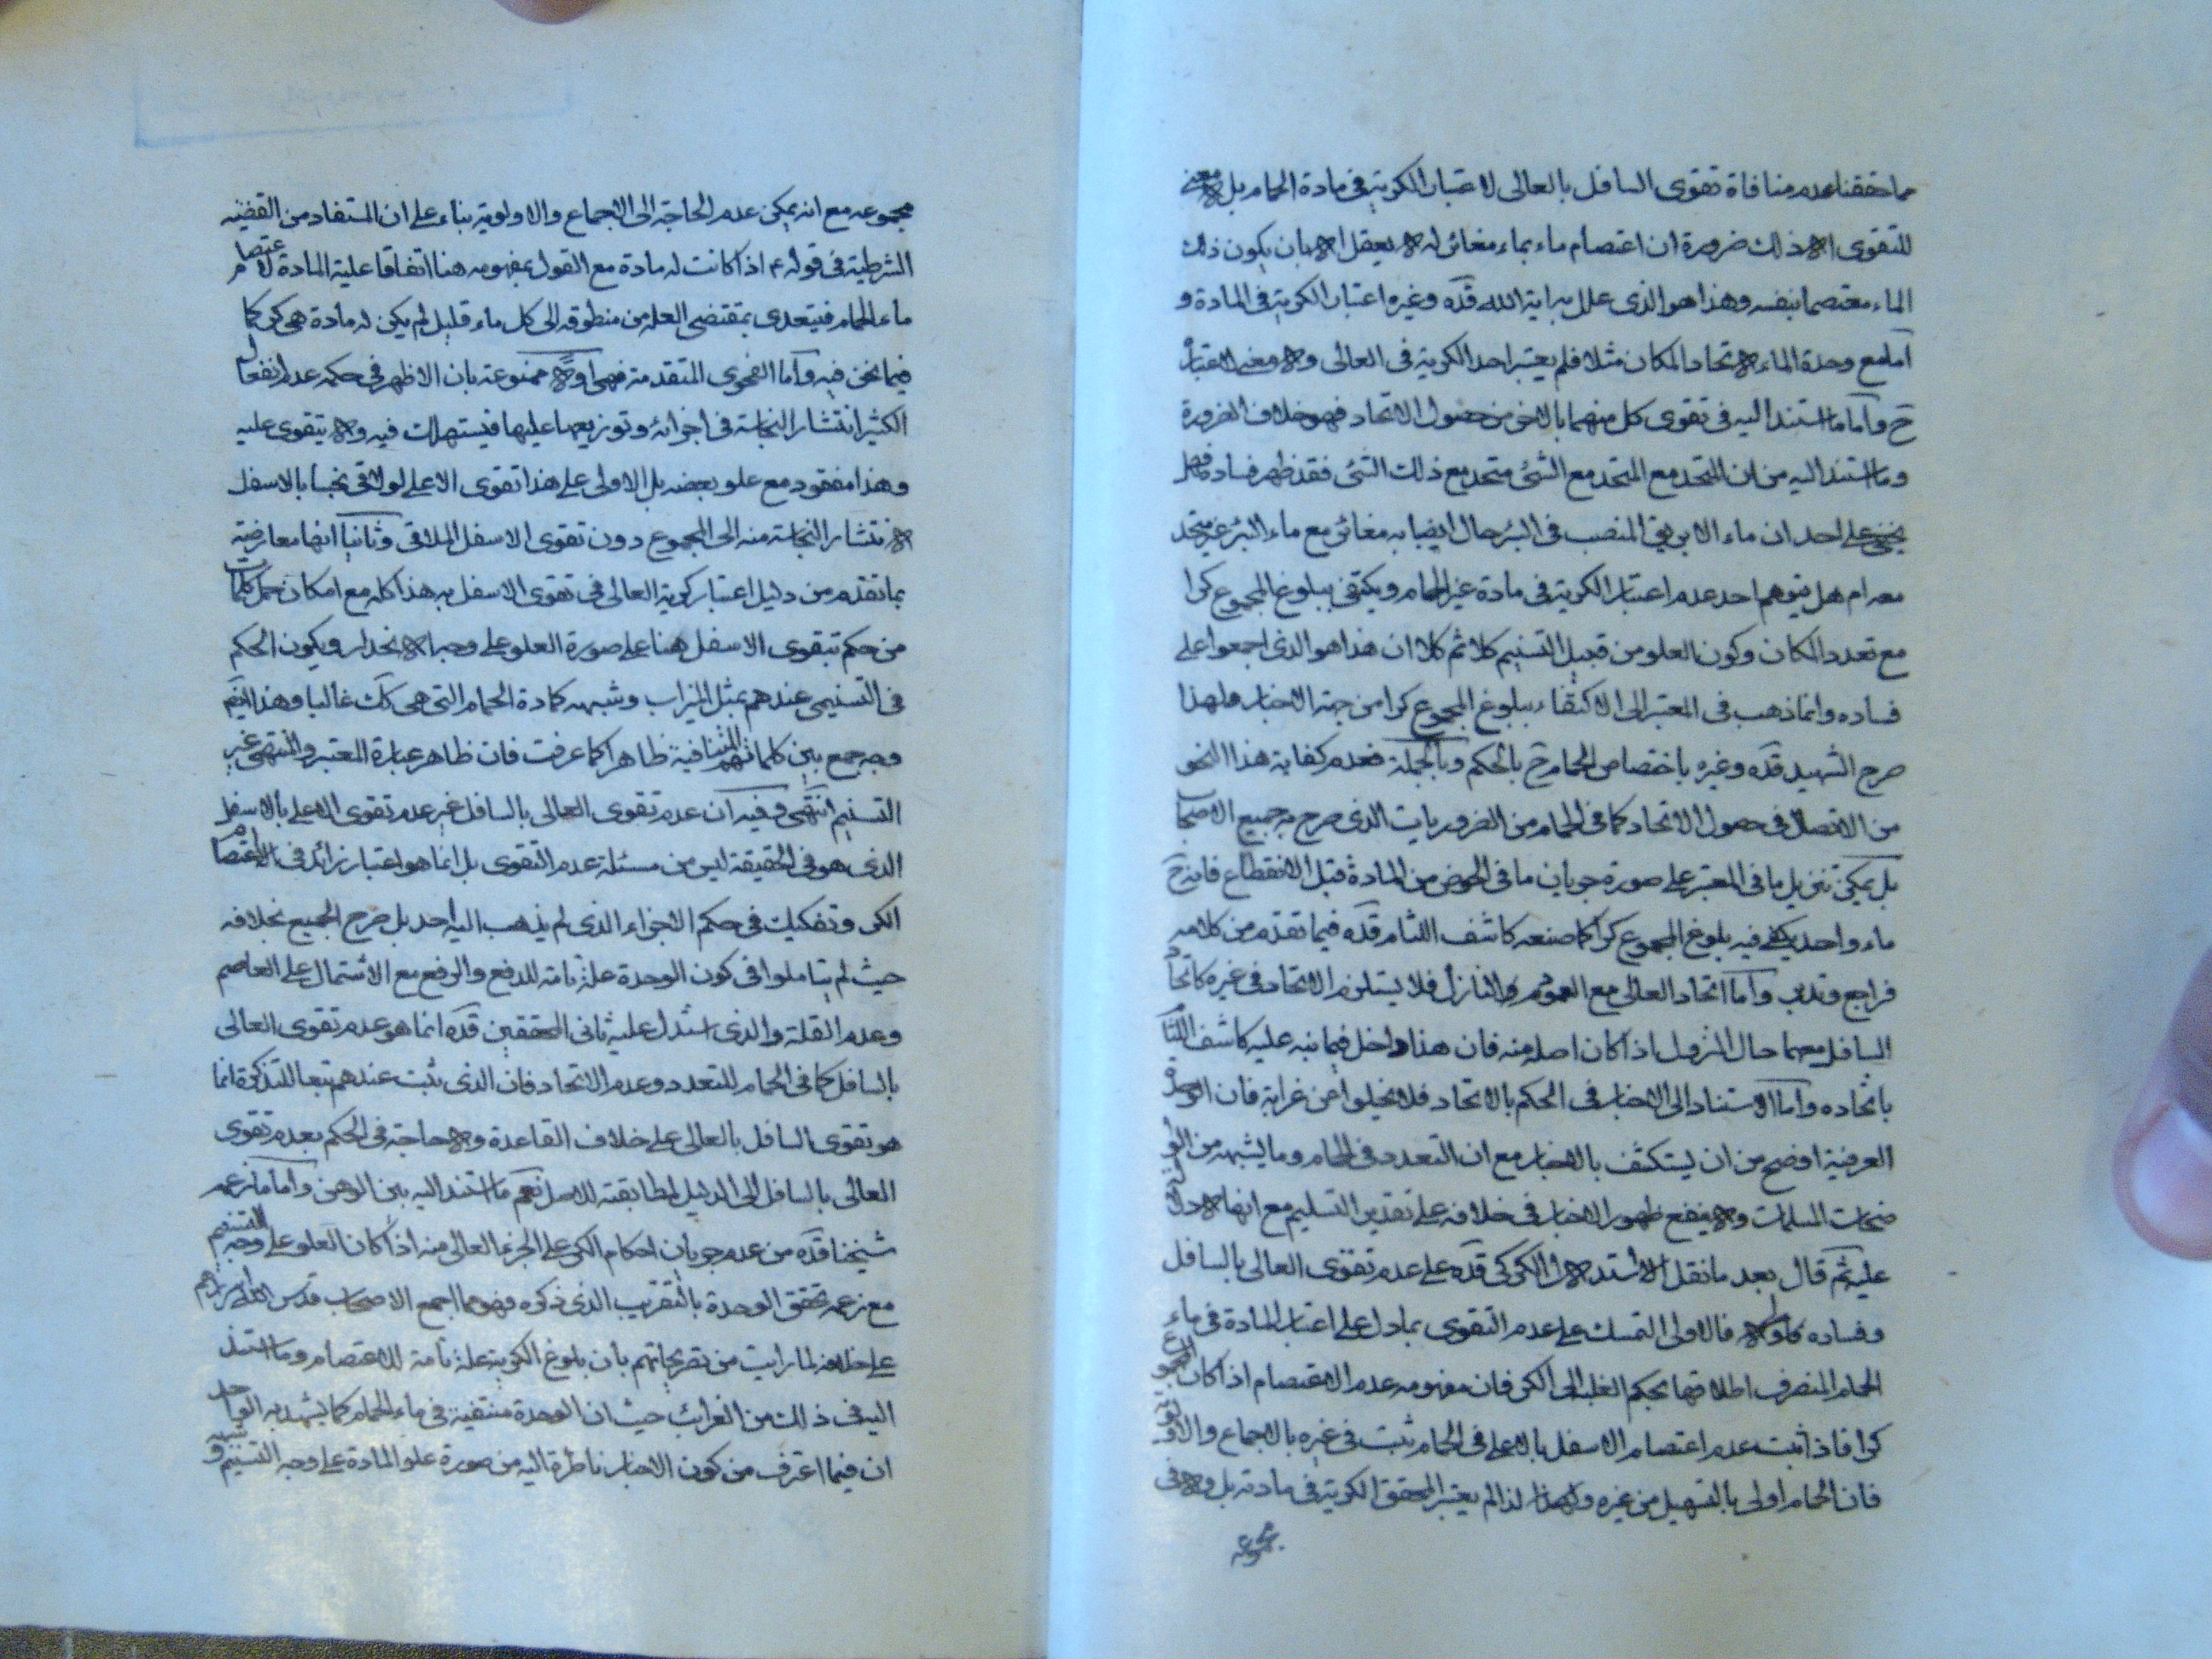 مما حققنا عدم منافاة تقوى السافل بالعالى لاعتبار الكرية فى مادة الحمام بل لا معنى
للتقوى الا ذلك ضرورة ان اعتصام ماء بماء مغائر له لا يعقل الا بان يكون ذلك
الماء معتصما بنفسه وهذا هو الذى علل به اية الله قده وغيره اعتبار الكرية فى المادة و
اما مع وحدة الماء لاتحاد المكان مثلا فلم يعتبر احد الكرية فى العالى ولا معنى لاعتباره
ح واما ما استند اليه فى تقوى كل منهما بالاخر من حصول الاتحاد فهو خلاف الضرورة
وما استند اليه من ان المتحد مع المتحد مع الشئ متحد مع ذلك الشئ فقد ظهر فساده فهل
يخفى على احد ان ماء الابريق المنصب فى البئر حال انصبابه مغائر مع ماء البئر غير متحد
معه ام هل يتوهم احد عدم اعتبار الكرية فى مادة غير الحمام ويكتفى ببلوغ المجموع كرا
مع تعدد المكان وكون العلو من قبيل التسنيم كلا ثم كلا ان هذا هو الذى اجمعوا على
فساده وانما ذهب فى المعتبر الى الاكتفاء ببلوغ المجموع كرا من جهة الاخبار ولهذا
صرح الشهيد قده وغيره باختصاص الحمام ح بالحكم وبالجملة فعدم كفاية هذا النحو
من الاتصال فى حصول الاتحاد كما فى الحمام من الضروريات الذى صرح به جميع الاصحاب
بل يمكن تنزيل ما فى المعتبر على صورة جريان ما فى الحوض من المادة قبل الانقطاع فانه ح
ماء واحد يكفى فيه بلوغ المجموع كرا كما صنعه كاشف اللثام قده فيما تقدم من كلامه
فراجع وتدبر واما اتحاد العالى مع العمود والنازل فلا يستلزم الاتحاد فى غيره كاتحاد
السافل معهما حال النزول اذا كان اصله منه فان هذا داخل فيما نبه عليه كاشف اللثام
باتحاده واما الاستناد الى الاخبار فى الحكم بالاتحاد فلا يخلوا من غرابة فان الوحدة
العرفية اوضح من ان يستكشف بالاخبار مع ان التعدد فى الحمام وما يشبهه من الوا
ضحات المسلمات ولا ينفع ظهور الاخبار فى خلافه على تقدير التسليم مع انها لا دلالة
عليه ثم قال بعد ما نقل استدلال الكركى قده على عدم تقوى العالى بالسافل
وفساده كما فالاولى التمسك على عدم التقوى بما دل على اعتبار المادة فى ماء
الحمام المنصرف اطلاقها بحكم الغلبة الى الكر فان مفهومه عدم الاعتصام اذا كان المجموع
كرا فاذا ثبت عدم اعتصام الاسفل بالاعلى فى الحمام ثبت فى غيره بالاجماع والاولوية
فان الحمام اولى بالتسهيل من غيره ولهذا لم يعتبر المحقق الكرية فى مادته بل ولا فى
مجموعه
مجموعه مع انه يمكن عدم الحاجة الى الاجماع والاولوية بناء على ان المستفاد من القضية
الشرطية فى قوله ع اذا كانت له مادة مع القول بمفهومه هنا اتفاقا علية المادة لاعتصام
ماء الحمام فيتعدى بمقتضى العلة من منطوقه الى كل ماء قليل لم يكن له مادة هى كر كما
فيما نحن فيه واما الفحوى المتقدمة فهى اولا ممنوعة بان الاظهر فى حكمة عدم انفعال
الكثير انتشار النجاسة فى اجزائه وتوزيعها عليها فيستهلك فيه ولا يتقوى عليه
وهذا مفقود مع علو بعضه بل الاولى على هذا تقوى الاعلى لو لاقى نجسا بالاسفل
لانتشار النجاسة منه الى المجموع دون تقوى الاسفل الملاقى وثانيا انها معارضة
بما تقدم من دليل اعتبار كرية العالى فى تقوى الاسفل به هذا كله مع امكان حمل كلمات
من حكم بتقوى الاسفل هنا على صورة العلو على وجه الانحدار ويكون الحكم
فى التسنيمى عندهم بمثل الميزاب وشبهه كمادة الحمام التى هى كك غالبا وهذا ايضم
وجه جمع بين كلماتهم المتنافية ظاهرا كما عرفت فان ظاهر عبارة المعتبر والمنتهى غير
التسنيم انتهى وفيه ان عدم تقوى العالى بالسافل غير عدم تقوى الاعلى بالاسفل
الذى هو فى الحقيقة ليس من مسئلة عدم التقوى بل انما هو اعتبار زائد فى اعتصام
الكر وتفكيك فى حكم الاجزاء الذى لم يذهب اليه احد بل صرح الجميع بخلافه
حيث لم يتاملوا فى كون الوحدة علة تامة للدفع والرفع مع الاشتمال على العاصم
وعدم القلة والذى استدل عليه ثانى المحققين قده انما هو عدم تقوى العالى
بالسافل كما فى الحمام للتعدد وعدم الاتحاد فان الذى ثبت عندهم تبعا للتذكرة انما
هو تقوى السافل بالعالى على خلاف القاعدة ولا حاجة فى الحكم بعدم تقوى
العالى بالسافل الى الدليل لمطابقته للاصل نعم ما استند اليه بين الوهن واما ما زعمه
شيخنا قده من عدم جريان احكام الكر على الجزء العالى منه اذا كان العلو على وجه التسنيم
مع زعمه تحقق الوحدة بالتقريب الذى ذكره فهو مما اجمع الاصحاب قدس الله اسرارهم
على خلافه لما رايت من تصريحاتهم بان بلوغ الكرية علة تامة للاعتصام وما استند
اليه فى ذلك من الغرائب حيث ان الوحدة منتفية فى ماء الحمام كما يشهد به
ان فيما اعترف من كون الاخبار ناظرة اليه من صورة علو المادة على وجه التسنيم و